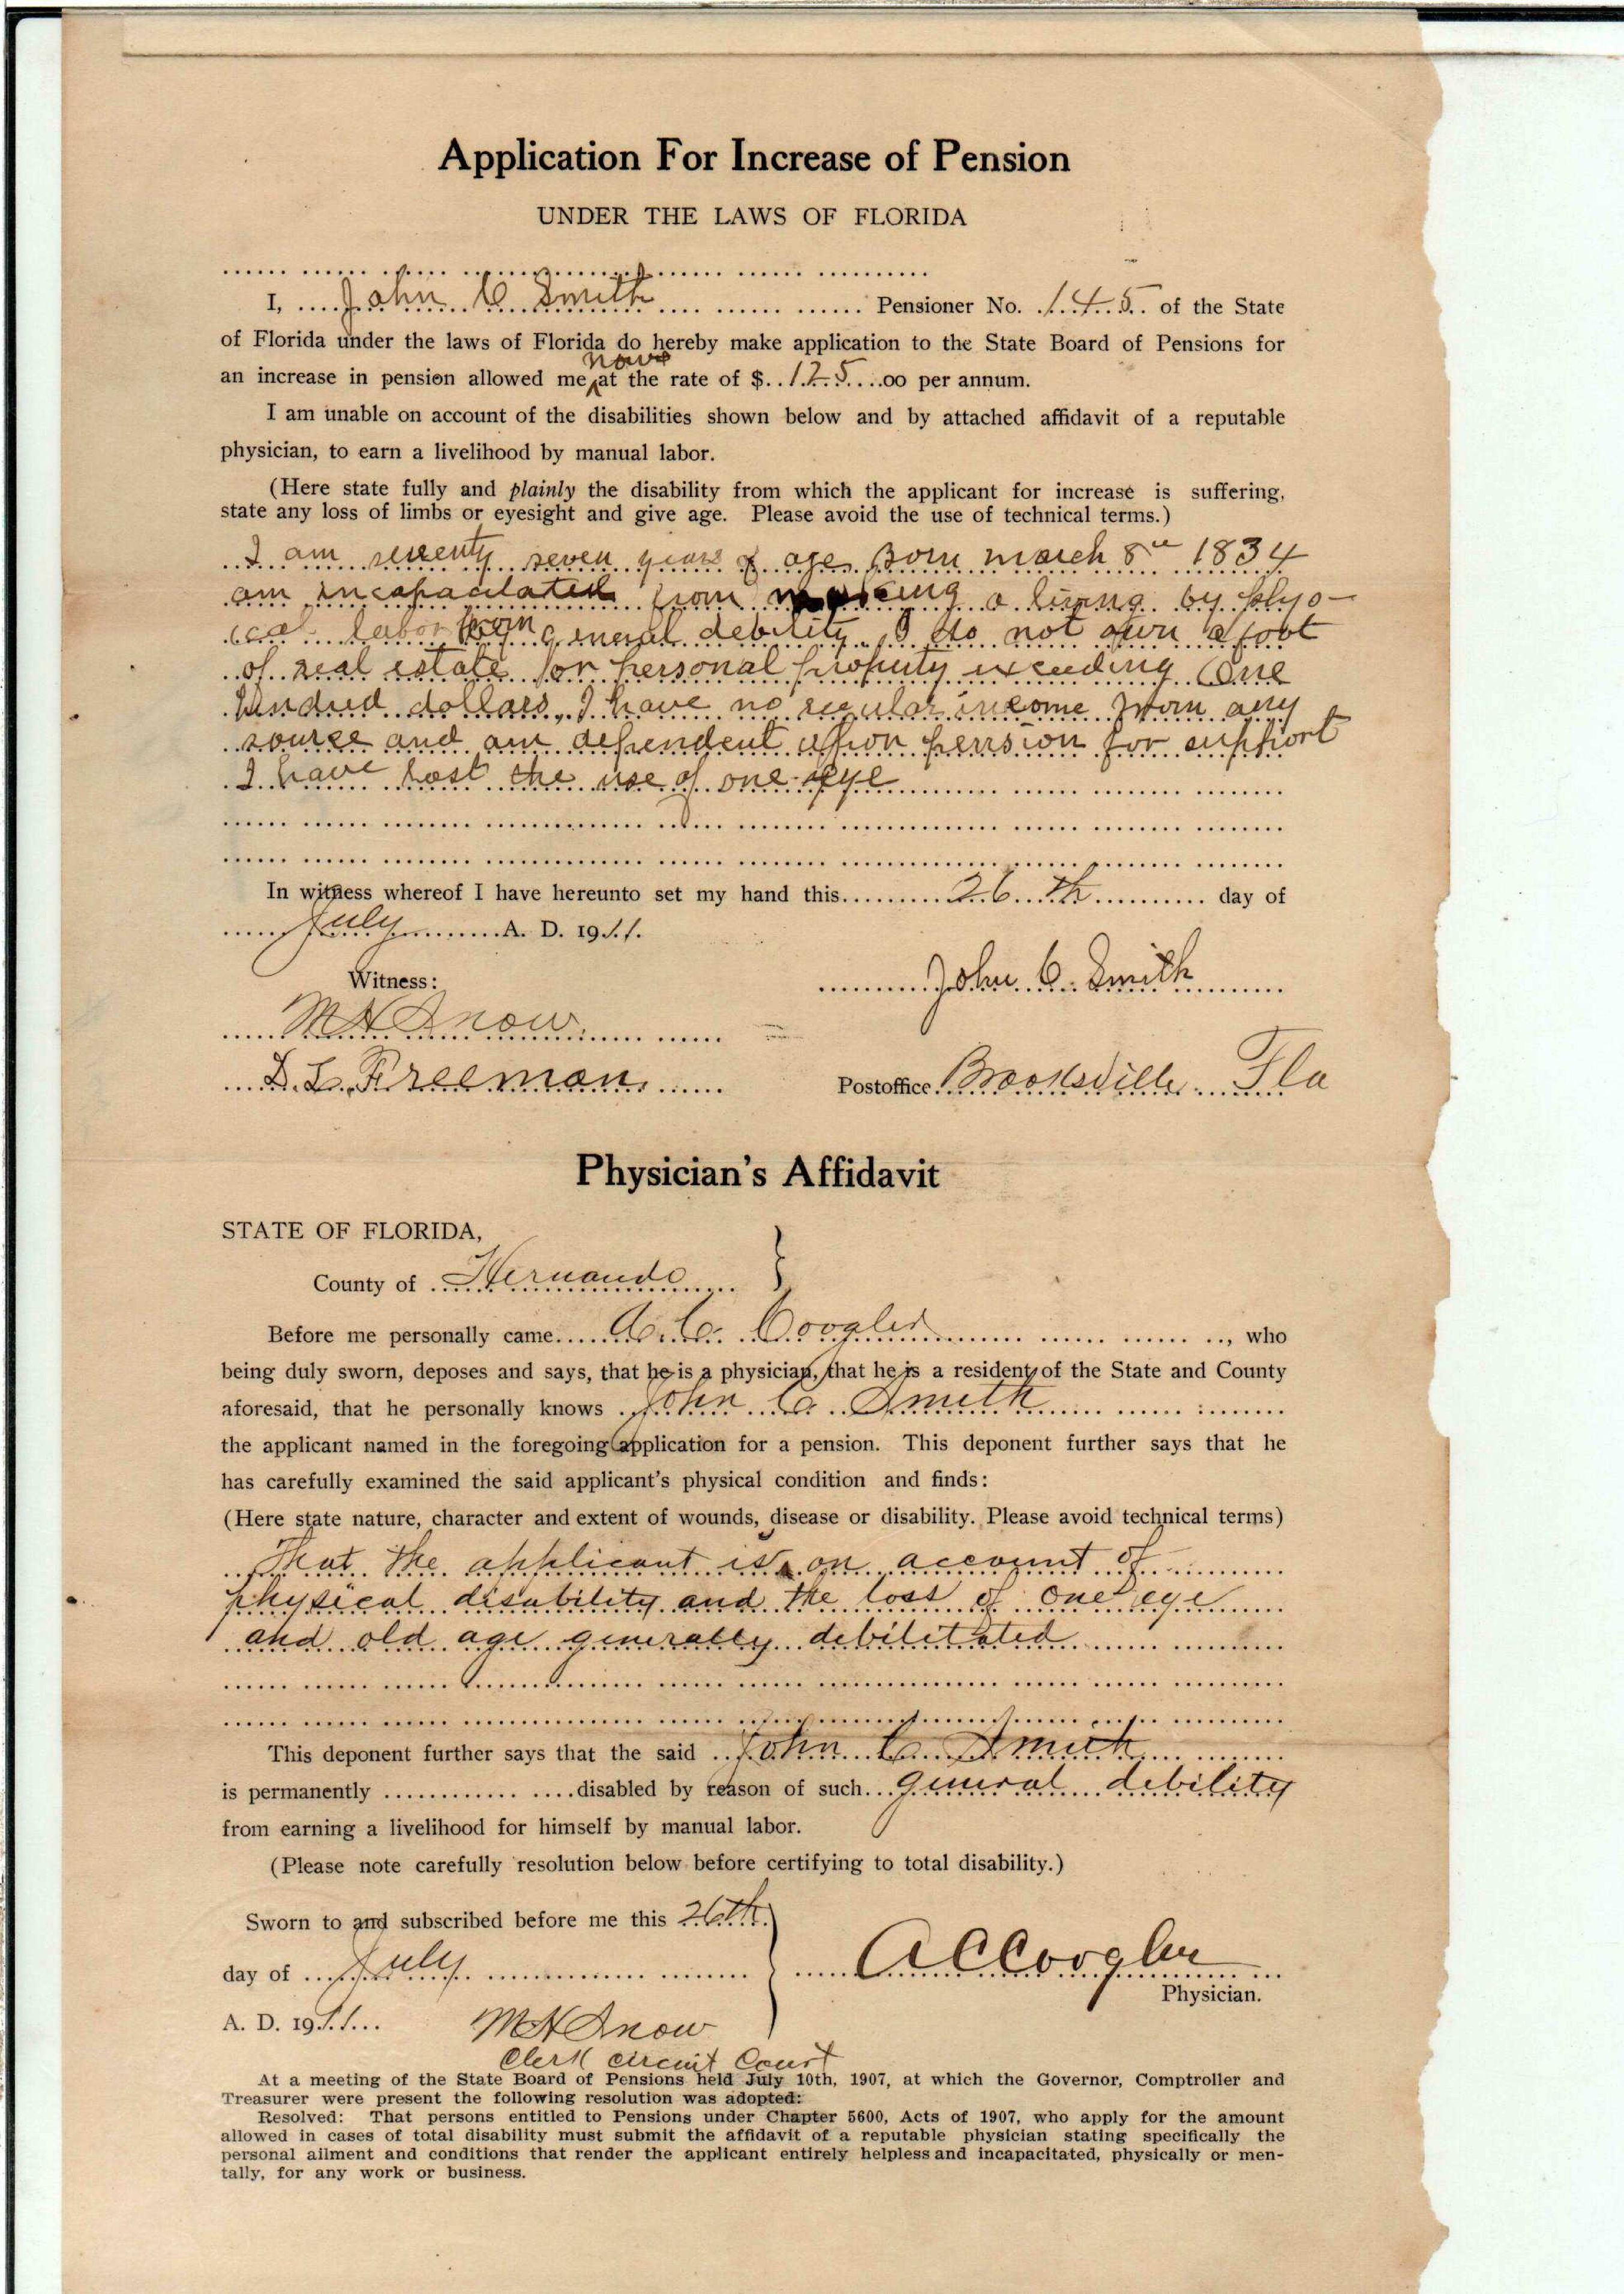 Application For Increase of Pension
UNDER THE LAWS OF FLORIDA
I, John C Smith Pensioner No. 145 of the State
of Florida under the laws of Florida do hereby make application to the State Board of Pensions for
now
an increase in pension allowed me at the rate of $ 125 .00 per annum.
I am unable on account of the disabilities shown below and by attached affidavit of a reputable
physician, to earn a livelihood by manual labor.
(Here state fully and plainly the disability from which the applicant for increase is suffering,
state any loss of limbs or eyesight and give age. Please avoid the use of technical terms.)
I am seventy seven years of age Born march 8th 1834
am incapacitated from making a living by phys-
ical labor from general debility I do not own a foot
of real estate or personal property exceeding One
hundred dollars, I have no regular income from any
source and am dependent upon pension for support
I have lost the use of one eye
In witness whereof I have hereunto set my hand this 26th day of
July A. D. 1911.
Witness:
John C. Smith
M H Snow
D. L. Freeman
Postoffice Brooksville Fla
Physician's Affidavit
STATE OF FLORIDA,
County of Hernando }
Before me personally came A. C. Coogler, who
being duly sworn, deposes and says, that he is a physician, that he is a resident of the State and County
aforesaid, that he personally knows John C Smith
the applicant named in the foregoing application for a pension. This deponent further says that he
has carefully examined the said applicant's physical condition and finds:
(Here state nature, character and extent of wounds, disease or disability. Please avoid technical terms)
That the applicant is on account of
physical disability and the loss of one eye
and old age generally debilitated
This deponent further says that the said John C. Smith
is permanently disabled by reason of such general debility
from earning a livelihood for himself by manual labor.
(Please note carefully resolution below before certifying to total disability.)
Sworn to and subscribed before me this 26th.
day of July
A C Coogler
Physician.
A. D. 1911
M H Snow
Clerk Circuit Court
At a meeting of the State Board of Pensions held July 10th, 1907, at which the Governor, Comptroller and
Treasurer were present the following resolution was adopted:
Resolved: That persons entitled to Pensions under Chapter 5600, Acts of 1907, who apply for the amount
allowed in cases of total disability must submit the affidavit of a reputable physician stating specifically the
personal ailment and conditions that render the applicant entirely helpless and incapacitated, physically or men-
tally, for any work or business.